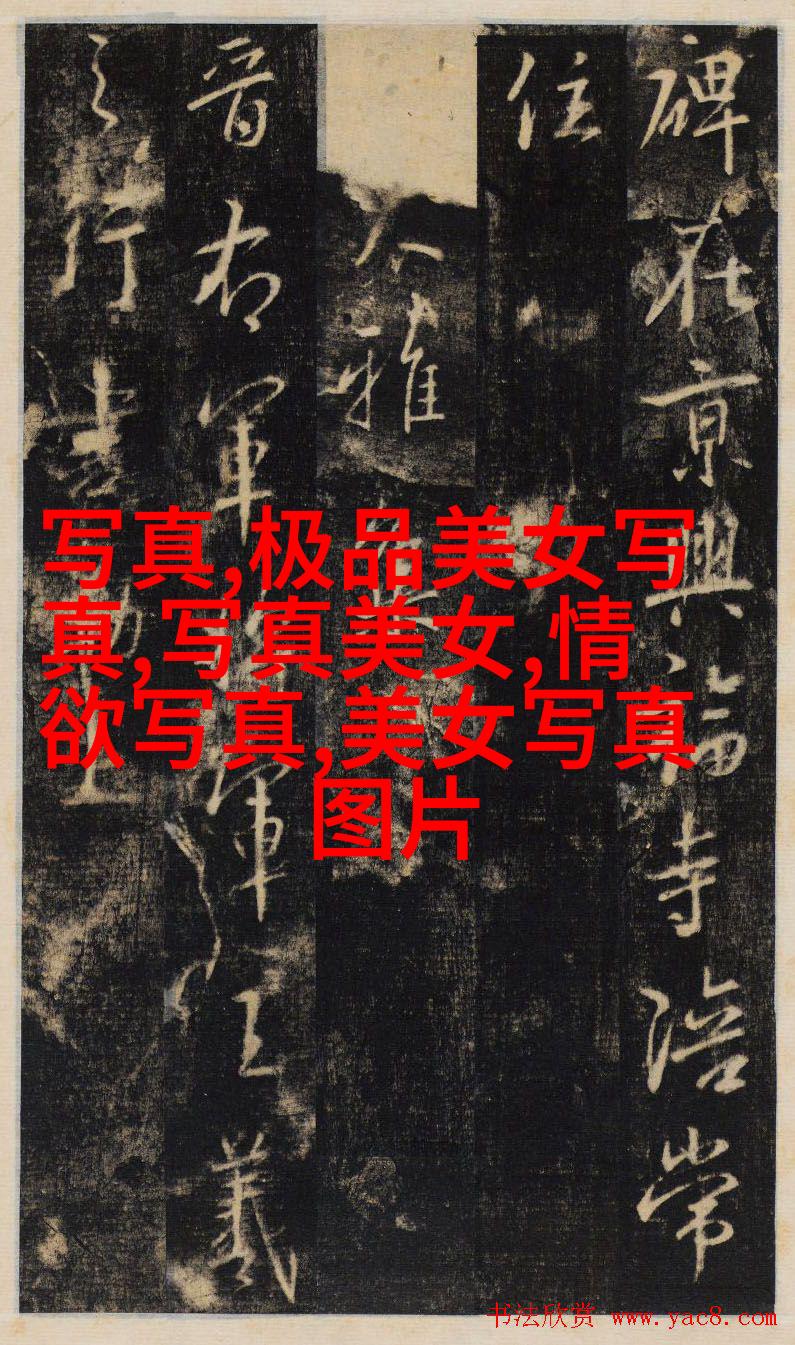 碑在京興福寺陪常
住
大雅
晉右軍將軍王羲
之行書勒上
写真,极品美女写
真,写真美女,情
欲写真,美女写真
图片
书法欣赏 www.yac8.com